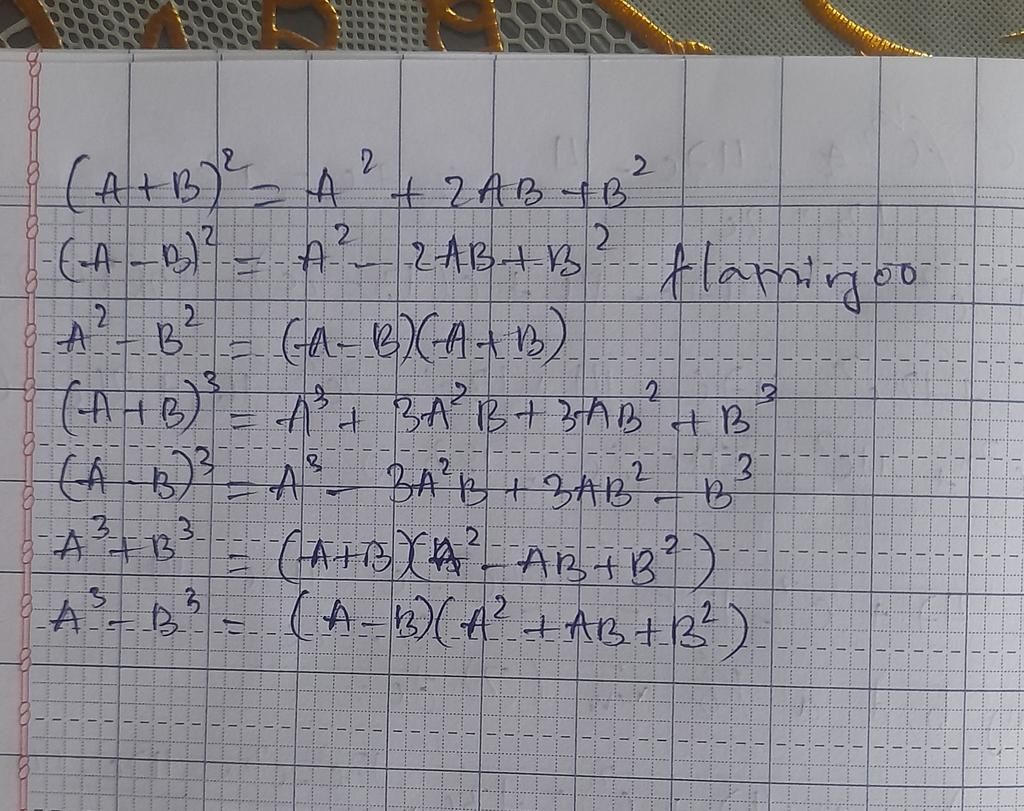 (A+B)² = A² + 2AB + B²
(A-B)² = A² - 2AB + B² flamingoo
A² - B² = (A-B)(A+B)
(A+B)³ = A³ + 3A²B + 3AB² + B³
(A-B)³ = A³ - 3A²B + 3AB² - B³
A³+B³ = (A+B)(A² - AB + B²)
A³ - B³ = (A-B)(A² + AB + B²)